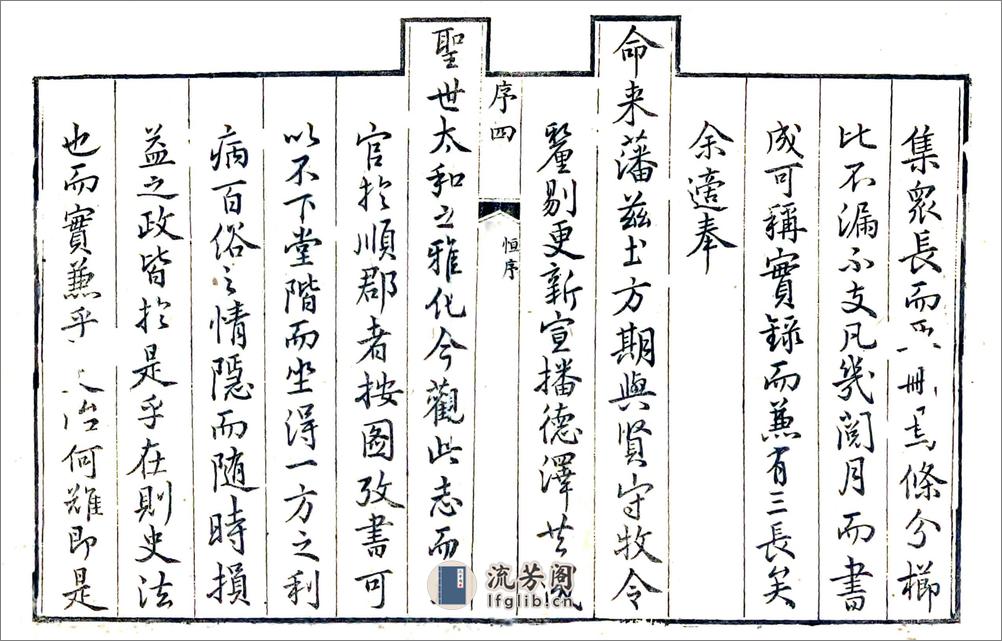 集眾長而刪焉條分櫛
比不漏不支凡幾閱月而書
成可稱實錄而兼有三長矣
余適奉
命来藩茲土方期與賢守牧令
釐剔更新宣播德澤共
序四
恒序
聖世太和之雅化今觀此志而
官於順郡者按圖攷書可
以不下堂階而坐得一方之利
病百俗之情隱而随時損
益之政皆於是乎在則史法
也而實兼乎治何難即是
流芳阁
lfglib.cn